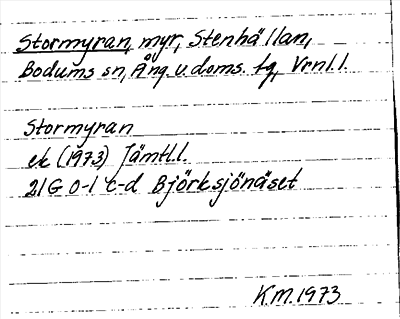 Stormyran, myr, Stenhällan,
Bodums sn, Ång. v. doms. tg, Vrnl. l.
Stormyran
ek (1973) Jämtl.l.
21G 0-1 c-d Björksjönäset
K.M. 1973